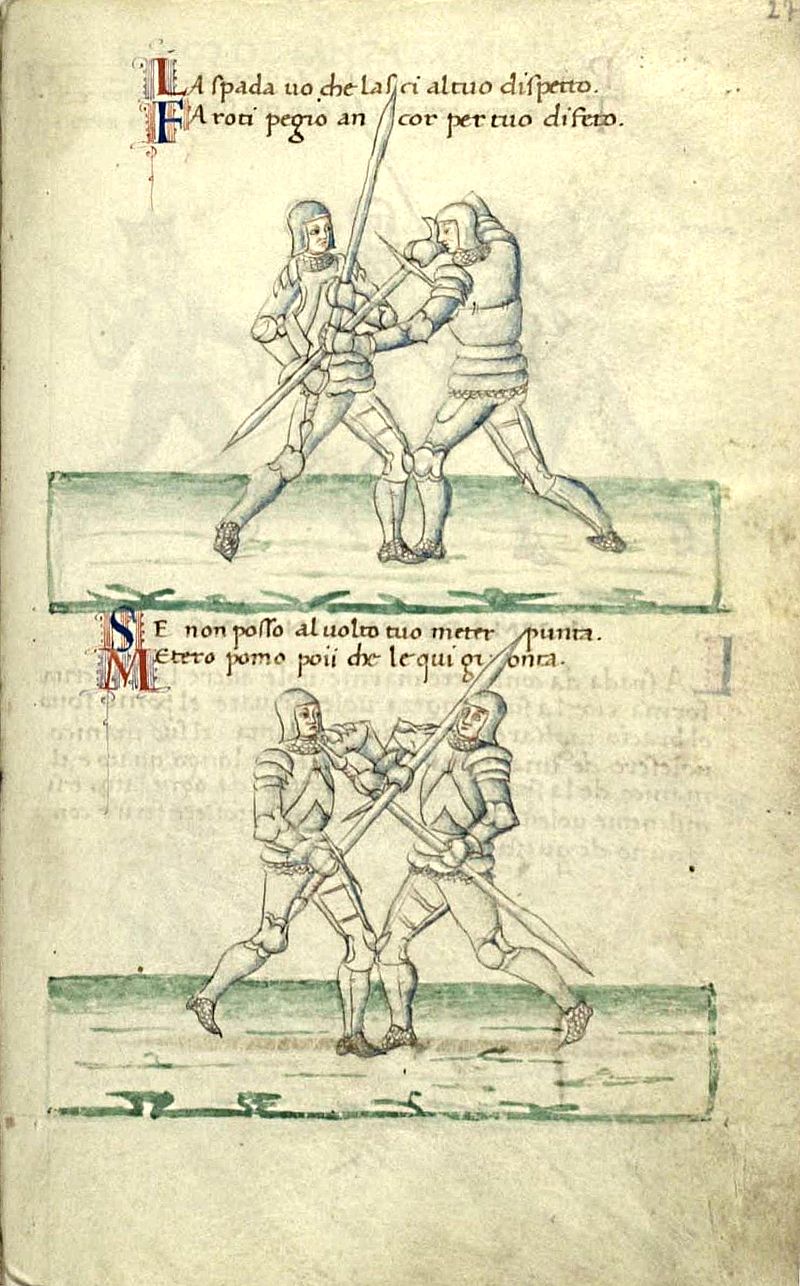 27
LA spada uo che lasci al tuo dispetto.
FAroti pegio an cor per tuo difeto.
SE non posso al uolto tuo meter punta.
MEtero pomo poii che le qui gionta.
L